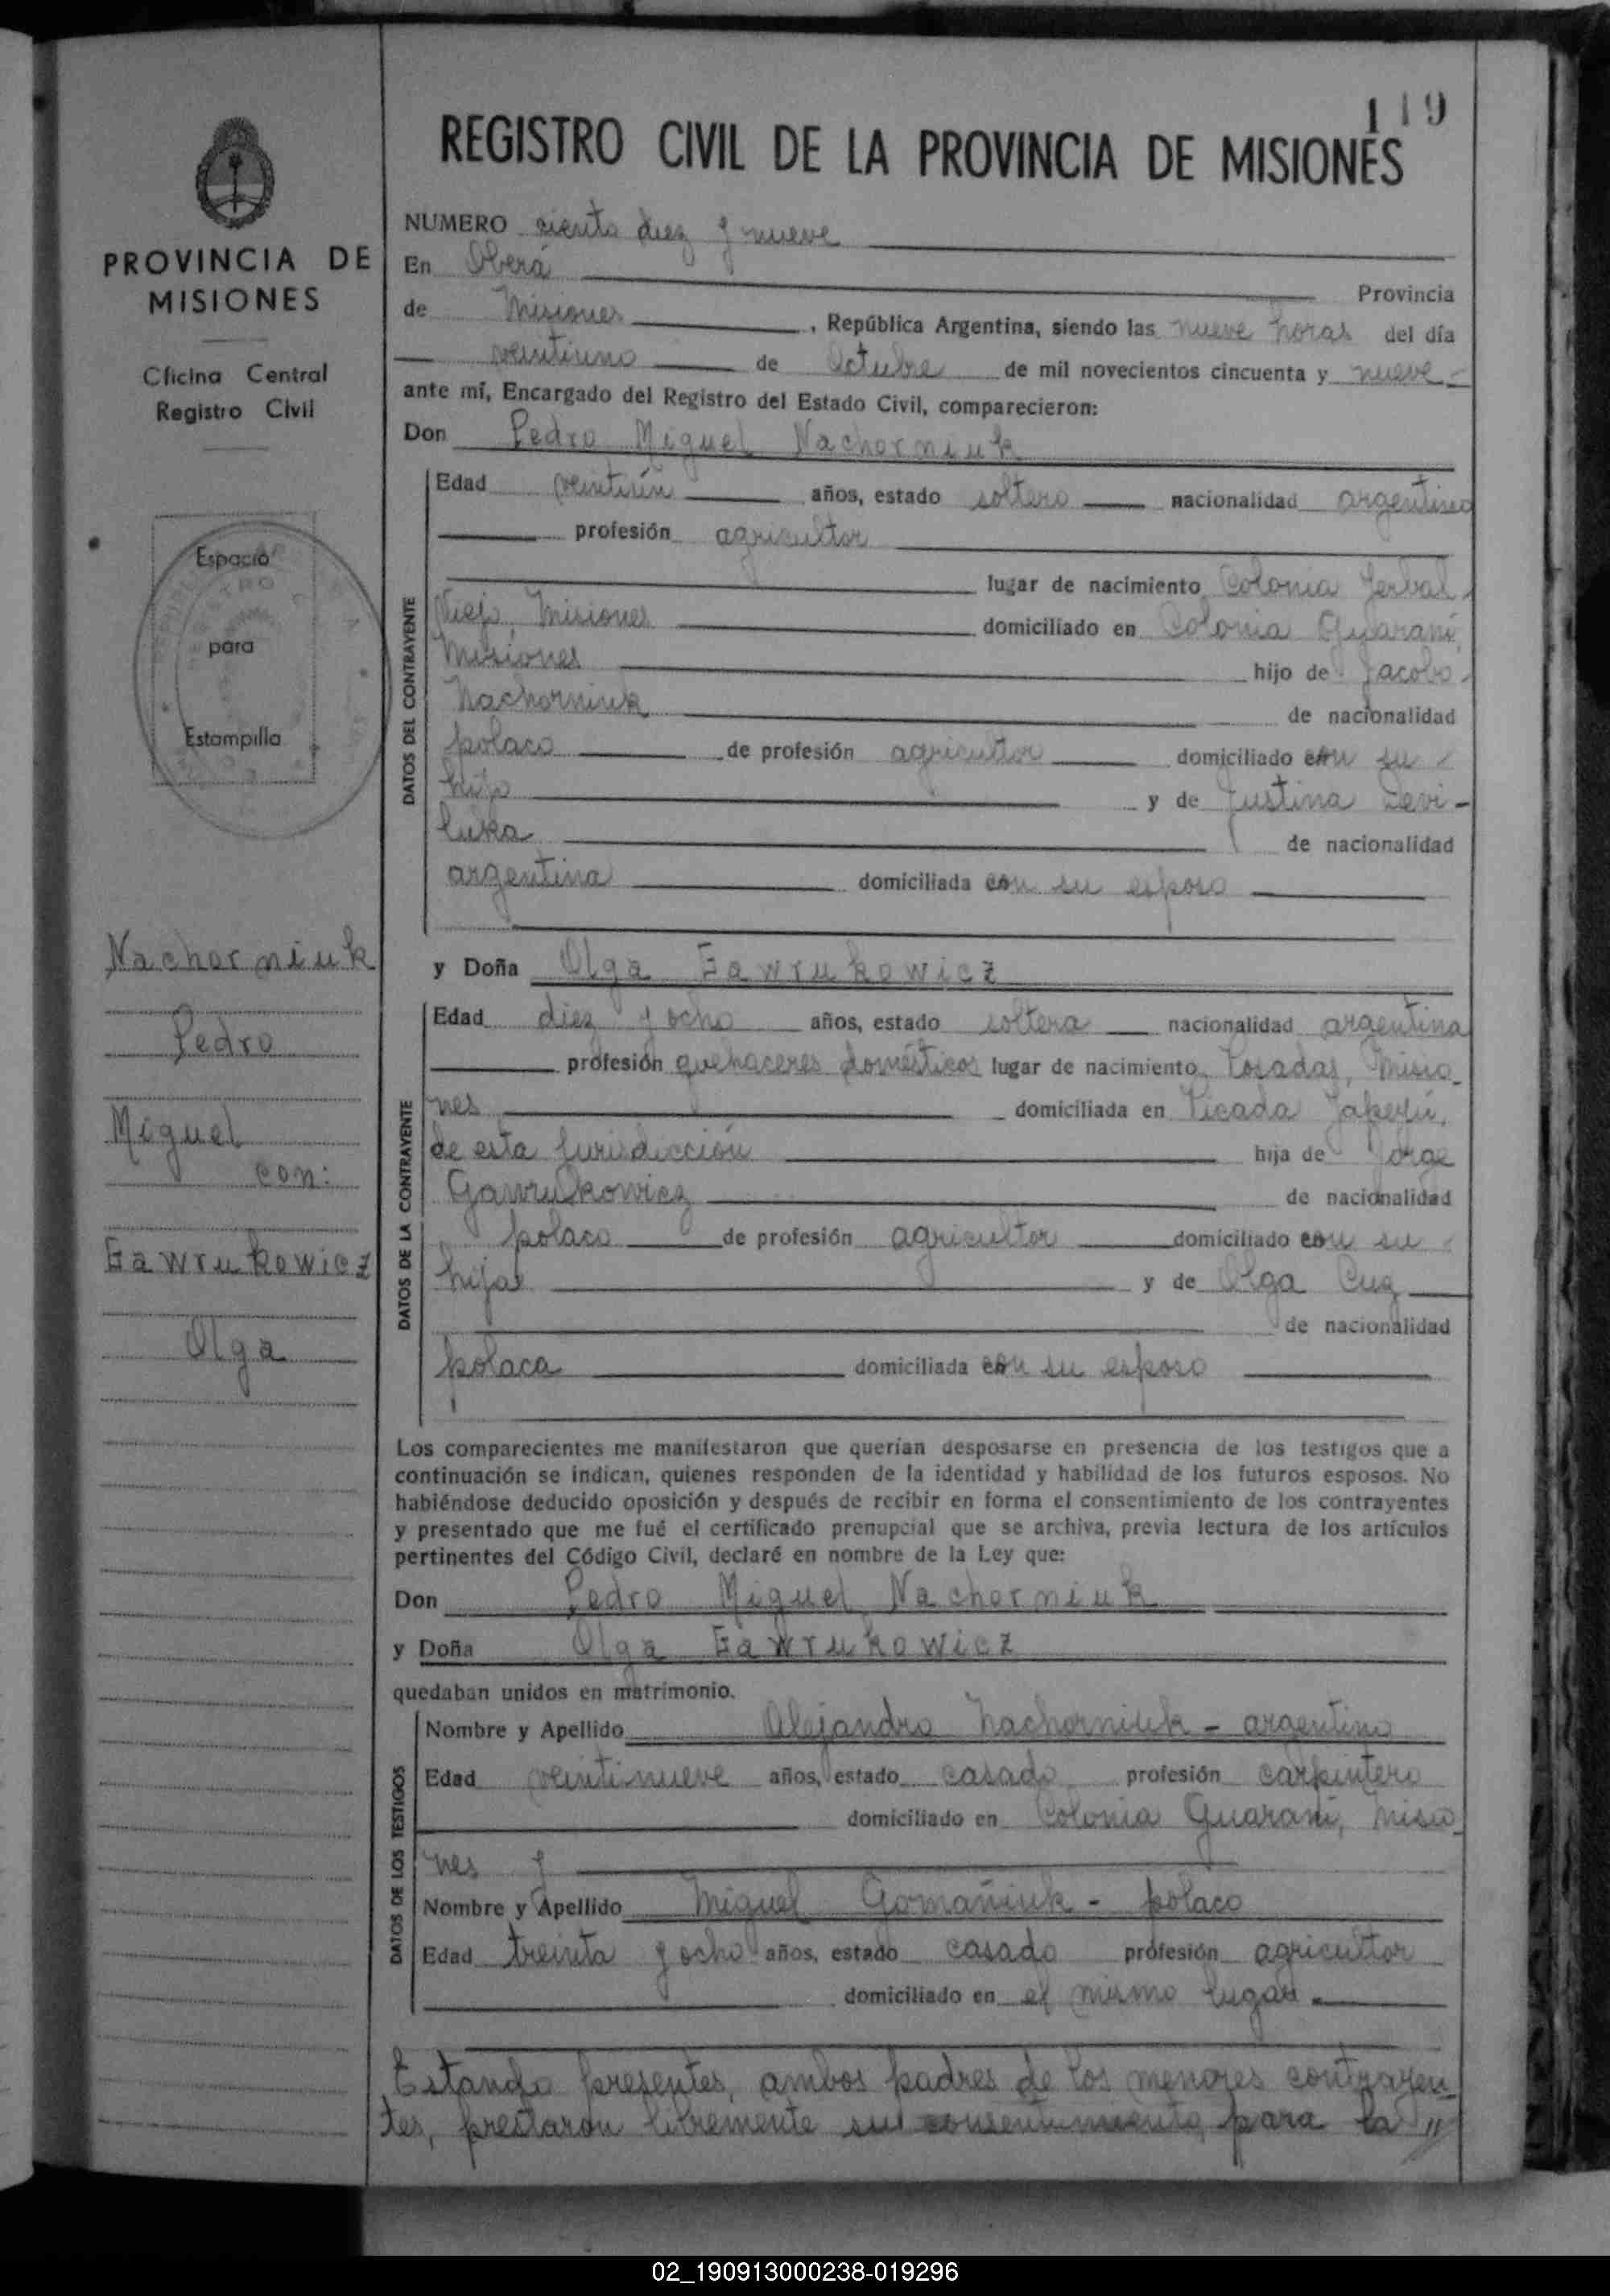 119
REGISTRO CIVIL DE LA PROVINCIA DE MISIONES
PROVINCIA DE
MISIONES
Oficina Central
Registro Civil
Espacio
para
Estampilla
Nachorniuk
Pedro
Miguel
con:
Gawrukowicz
Olga
NUMERO ciento diez y nueve
En Oberá Provincia
de Misiones, República Argentina, siendo las nueve horas del día
veintiuno de Octubre de mil novecientos cincuenta y nueve
ante mí, Encargado del Registro del Estado Civil, comparecieron:
Don Pedro Miguel Nachorniuk
DATOS DEL CONTRAYENTE
Edad veintiún años, estado soltero nacionalidad argentino
profesión agricultor
lugar de nacimiento Colonia Yerbal
Viejo, Misiones domiciliado en Colonia Guaraní,
Misiones hijo de Jacobo
Nachorniuk de nacionalidad
polaco de profesión agricultor domiciliado con su
hijo y de Justina Levi-
luka de nacionalidad
argentina domiciliada con su esposo
y Doña Olga Gawrukowicz
DATOS DE LA CONTRAYENTE
Edad diez y ocho años, estado soltera nacionalidad argentina
profesión quehaceres domésticos lugar de nacimiento Posadas, Misio-
nes domiciliada en Picada Yapeyú,
de esta jurisdicción hija de Jorge
Gawrukowicz de nacionalidad
polaco de profesión agricultor domiciliado con su
hija y de Olga Cuz
de nacionalidad
polaca domiciliada con su esposo
Los comparecientes me manifestaron que querían desposarse en presencia de los testigos que a
continuación se indican, quienes responden de la identidad y habilidad de los futuros esposos. No
habiéndose deducido oposición y después de recibir en forma el consentimiento de los contrayentes
y presentado que me fué el certificado prenupcial que se archiva, previa lectura de los artículos
pertinentes del Código Civil, declaré en nombre de la Ley que:
Don Pedro Miguel Nachorniuk
y Doña Olga Gawrukowicz
quedaban unidos en matrimonio.
DATOS DE LOS TESTIGOS
Nombre y Apellido Alejandro Nachorniuk - argentino
Edad veintinueve años, estado casado profesión carpintero
domiciliado en Colonia Guaraní, Misio-
nes y
Nombre y Apellido Miguel Gomañiuk - polaco
Edad treinta y ocho años, estado casado profesión agricultor
domiciliado en el mismo lugar.
Estando presentes, ambos padres de los menores contrayen-
tes, prestaron libremente su consentimiento para la //
02_190913000238-019296